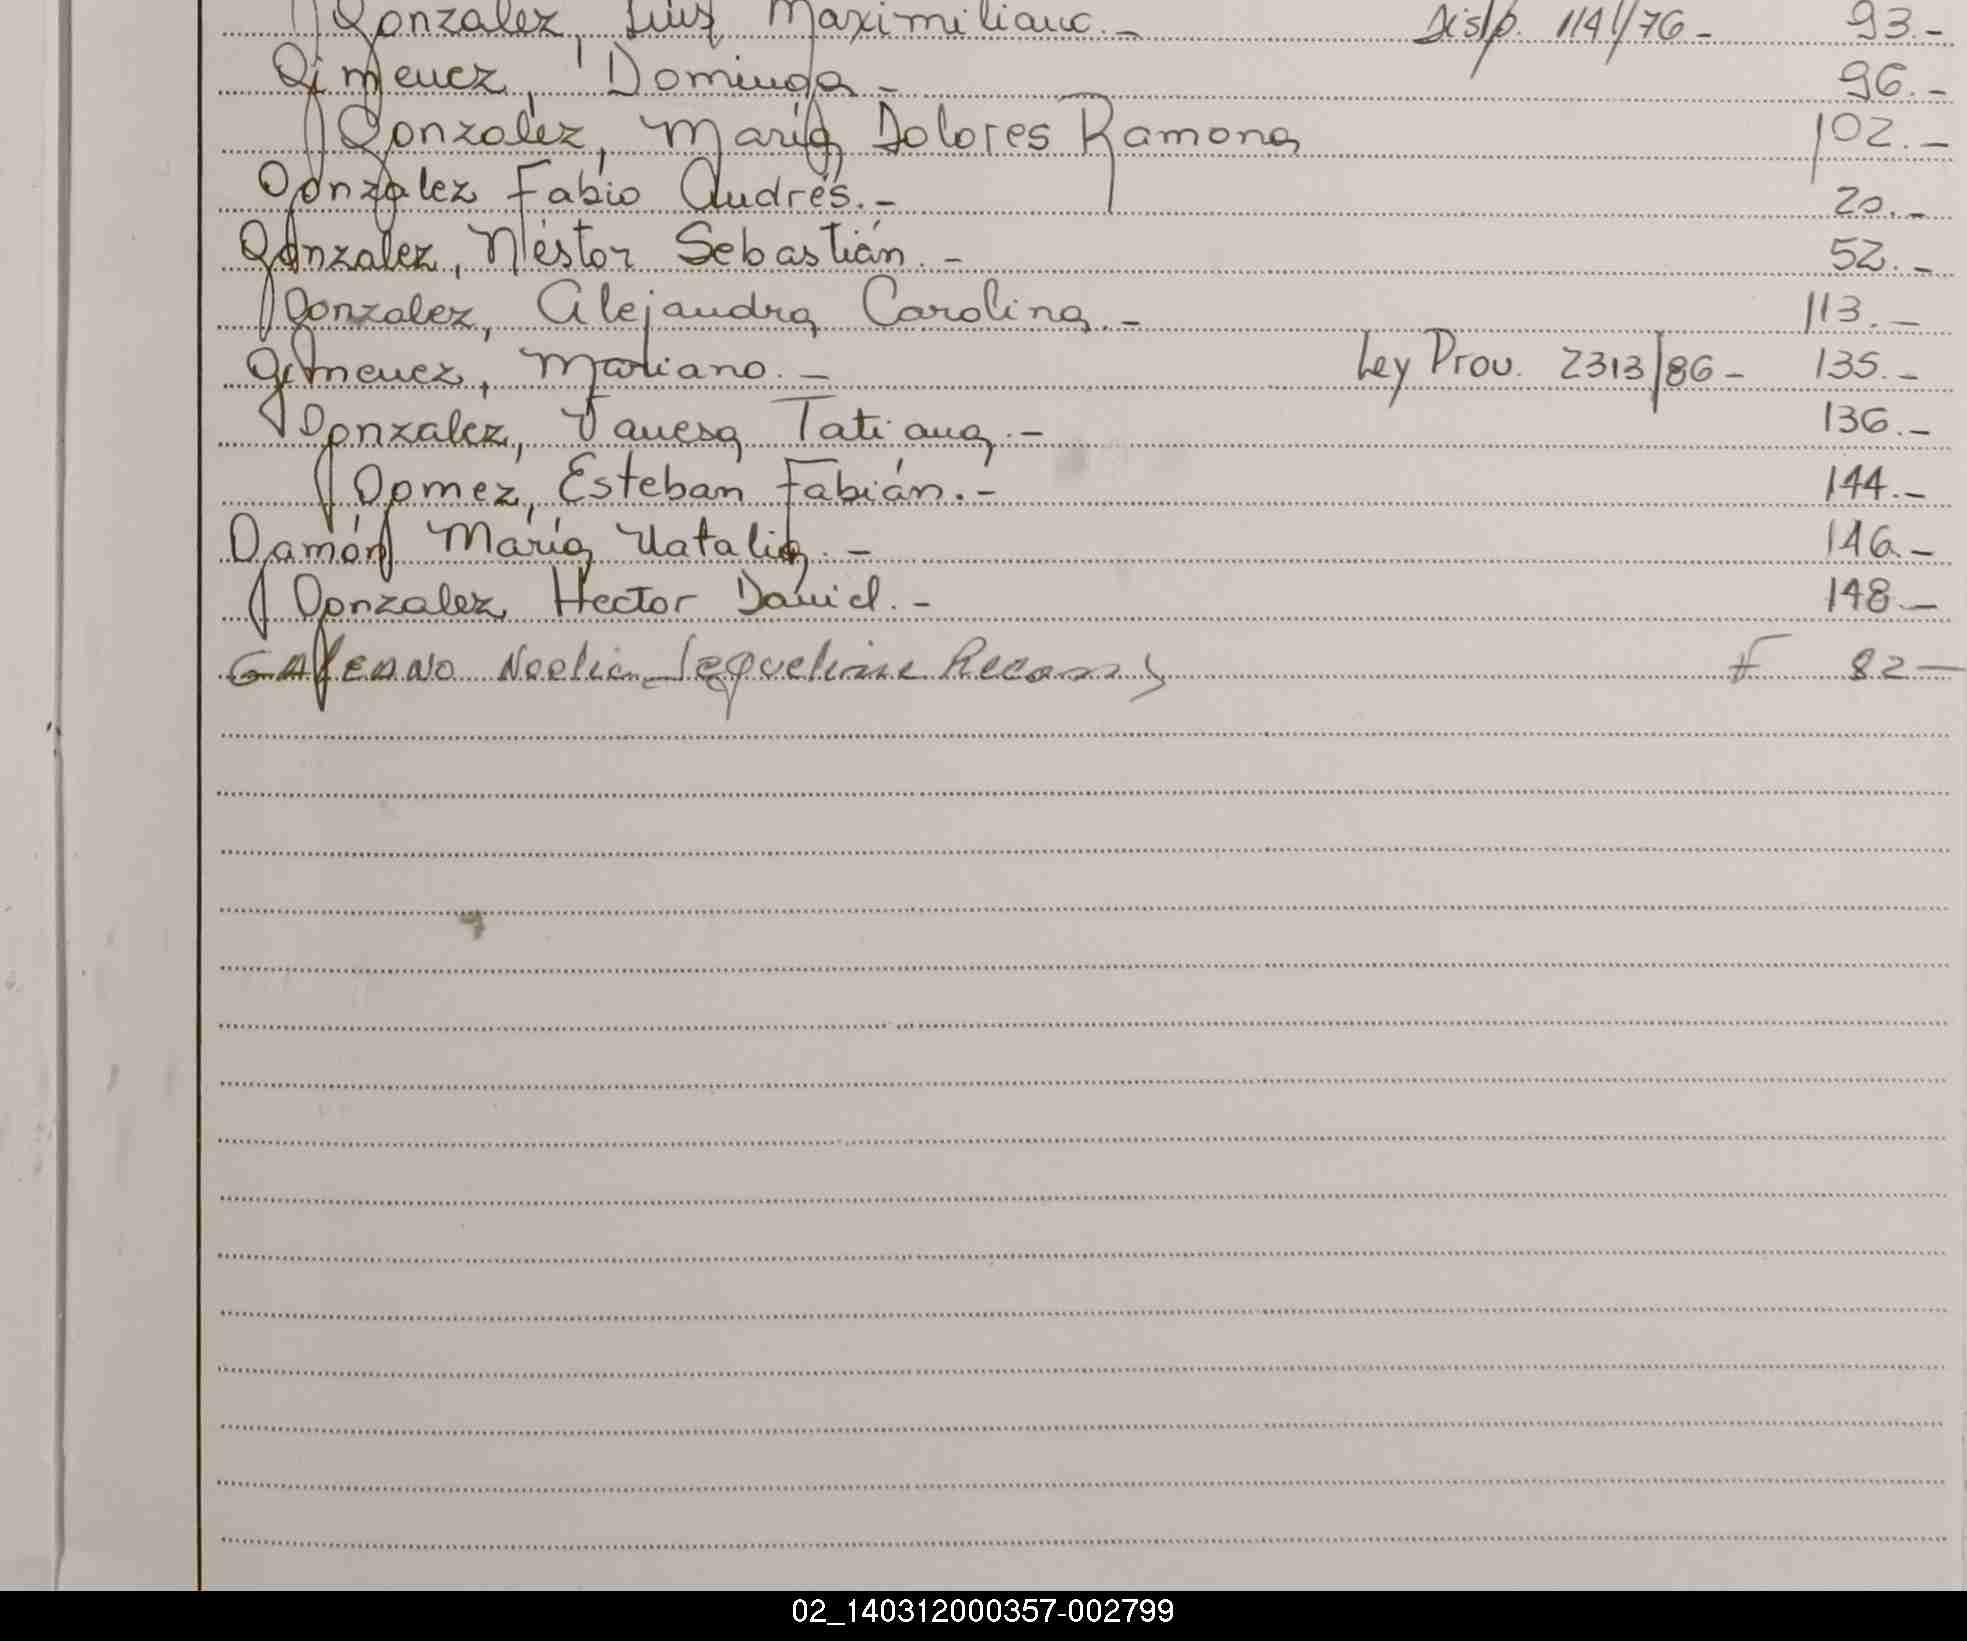 Gonzalez, Luis Maximiliano.- Disp. 1141/76- 93.-
Gimenez, Dominga- 96.-
Gonzalez, María Dolores Ramona 102.-
Gonzalez Fabio Andrés.- 20.-
Gonzalez, Néstor Sebastián.- 52.-
Gonzalez, Alejandra Carolina.- 113.-
Gimenez, Mariano.- Ley Prov. 2313/86- 135.-
Gonzalez, Vanesa Tatiana.- 136.-
Gomez, Esteban Fabián.- 144.-
Gamón María Natalia.- 146.-
Gonzalez Hector Daniel.- 148.-
GALEANO Noelia Jaqueline F 82-
02_140312000357-002799